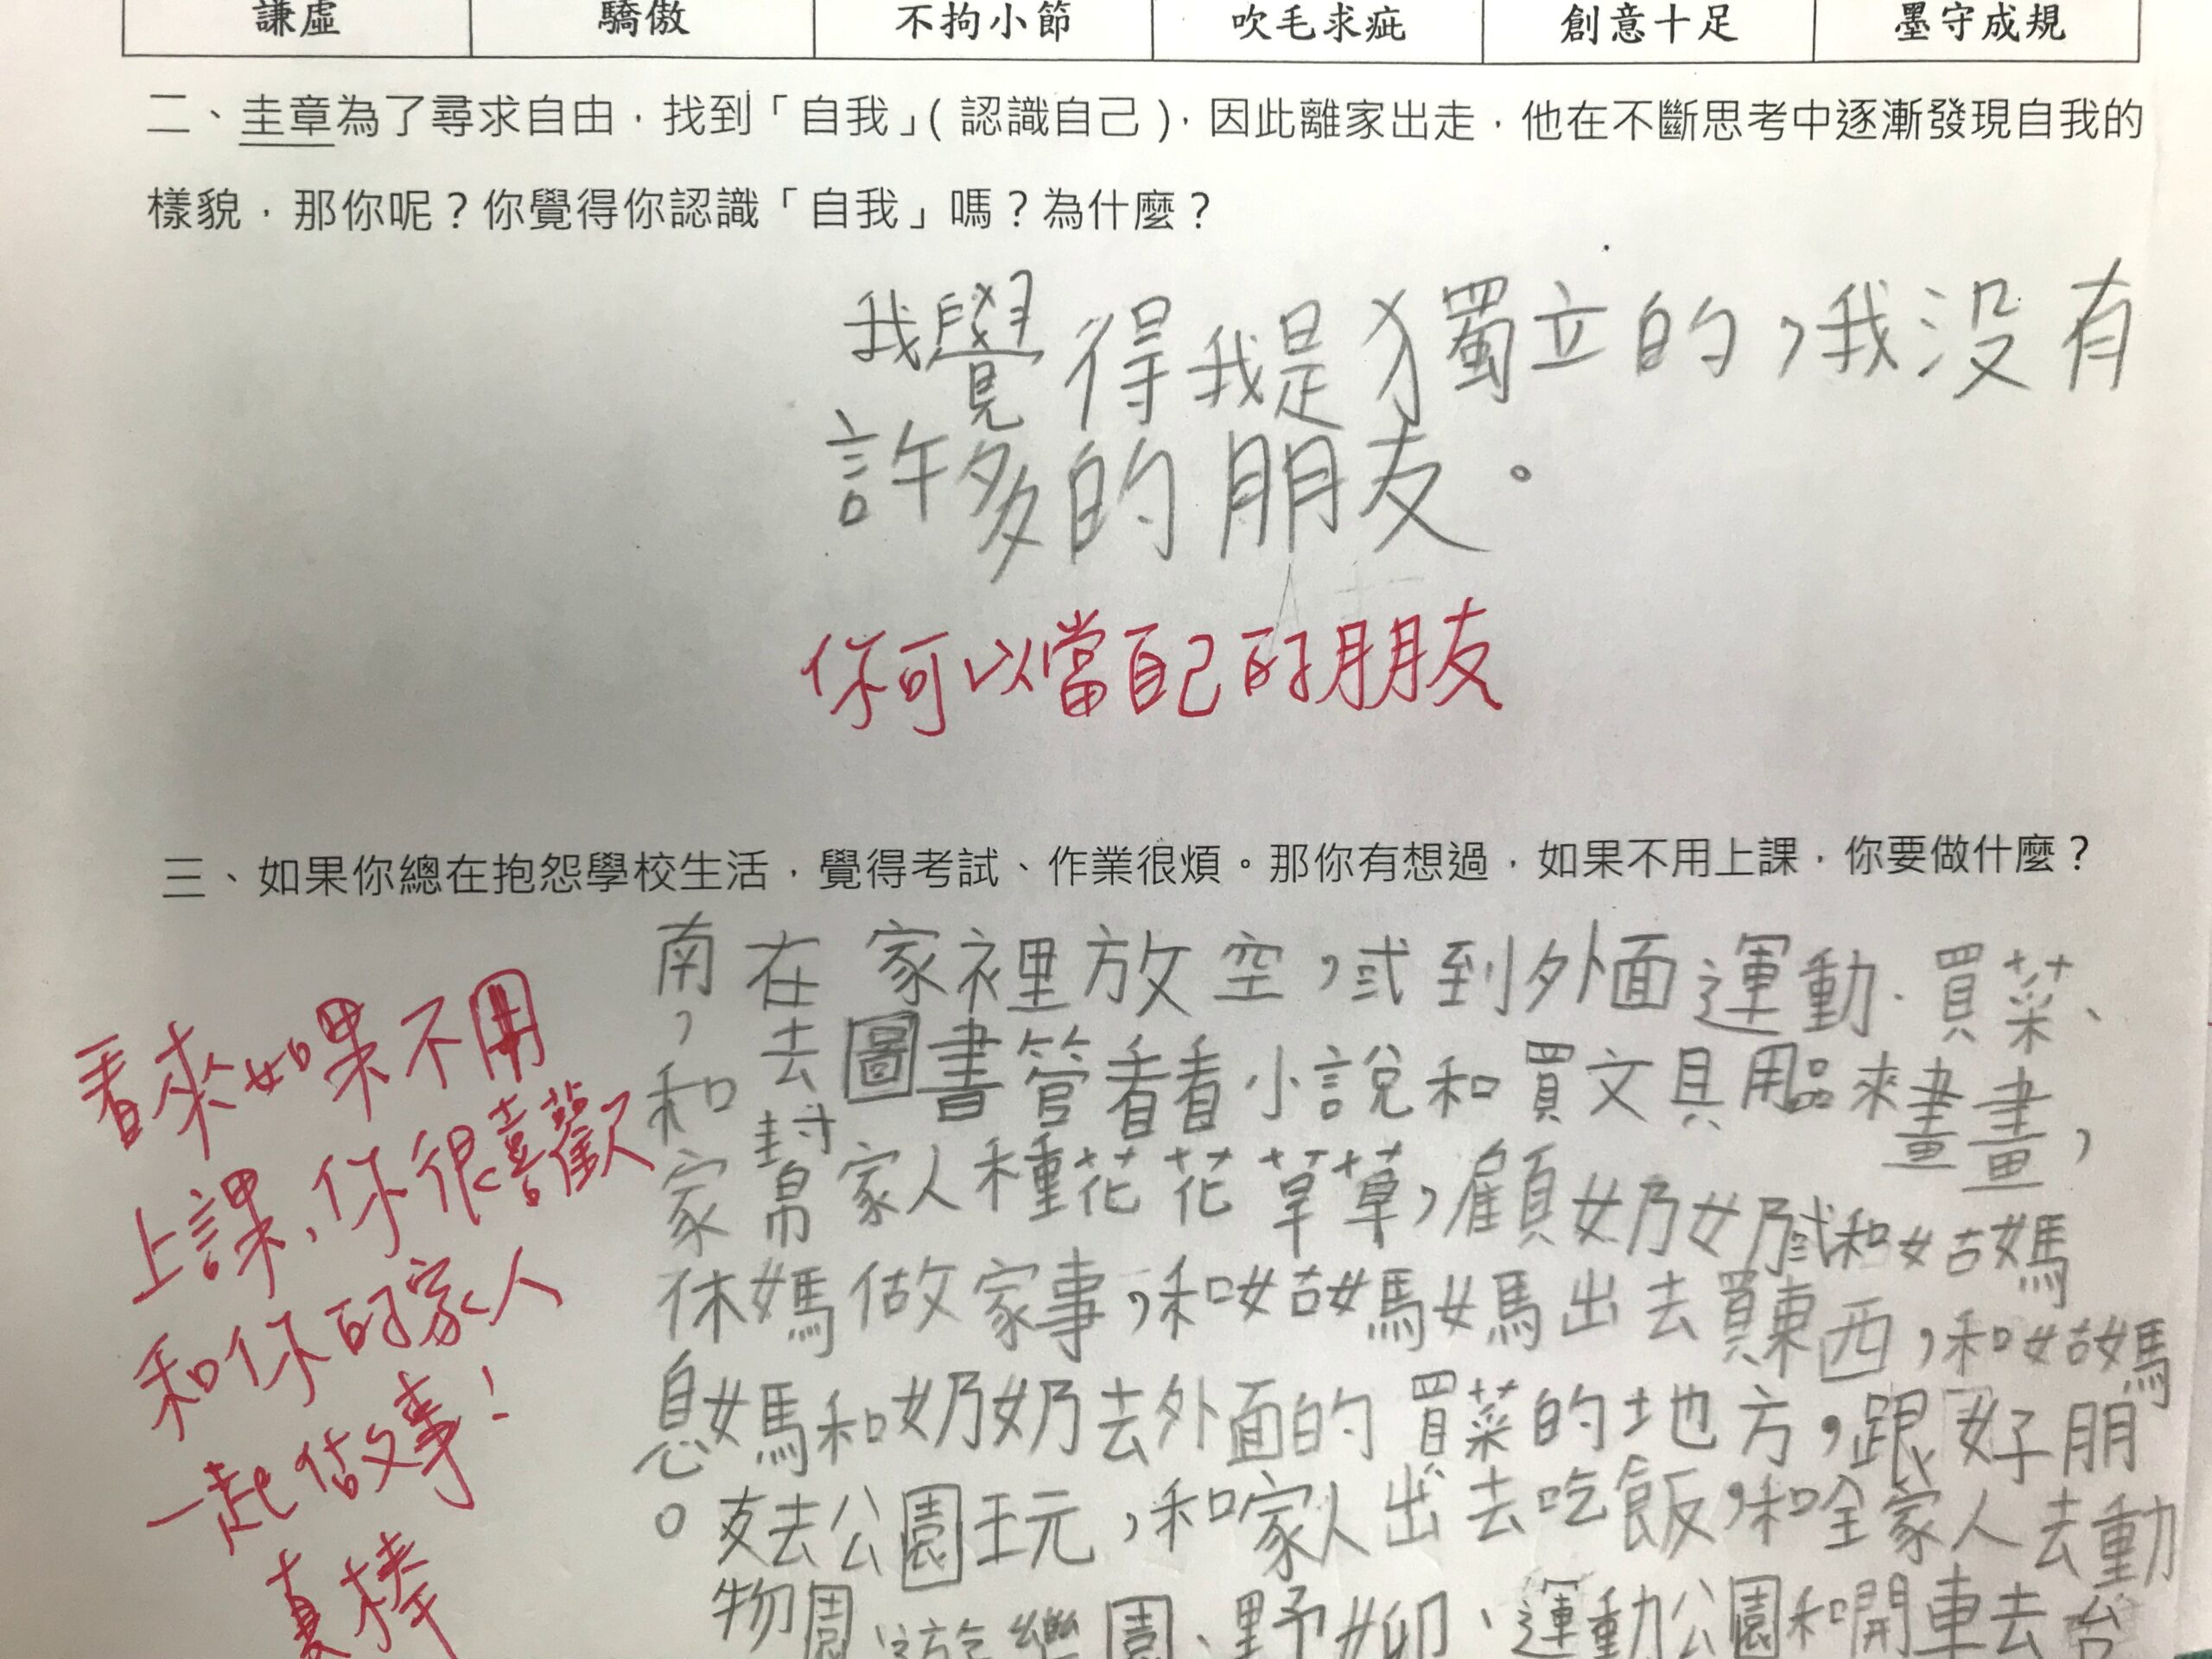 謙虛 驕傲 不拘小節 吹毛求疵 創意十足 墨守成規
二、圭章為了尋求自由，找到「自我」(認識自己)，因此離家出走，他在不斷思考中逐漸發現自我的
樣貌，那你呢？你覺得你認識「自我」嗎？為什麼？
我覺得我是獨立的，我沒有
許多的朋友。
你可以當自己的朋友
三、如果你總在抱怨學校生活，覺得考試、作業很煩。那你有想過，如果不用上課，你要做什麼？
在家裡放空，或到外面運動、買菜、
去圖書管看看小說和買文具用品來畫畫，
幫家人種花花草草，顧奶奶或和姑媽
媽做家事，和姑媽媽出去買東西，和姑媽
媽和奶奶去外面的買菜的地方，跟好朋
友去公園玩，和家人出去吃飯，和全家人去動
物園、遊樂園、野外、運動公園和開車去台
南，和家休息。
看來如果不用
上課，你很喜歡
和你的家人
一起做事！
真棒